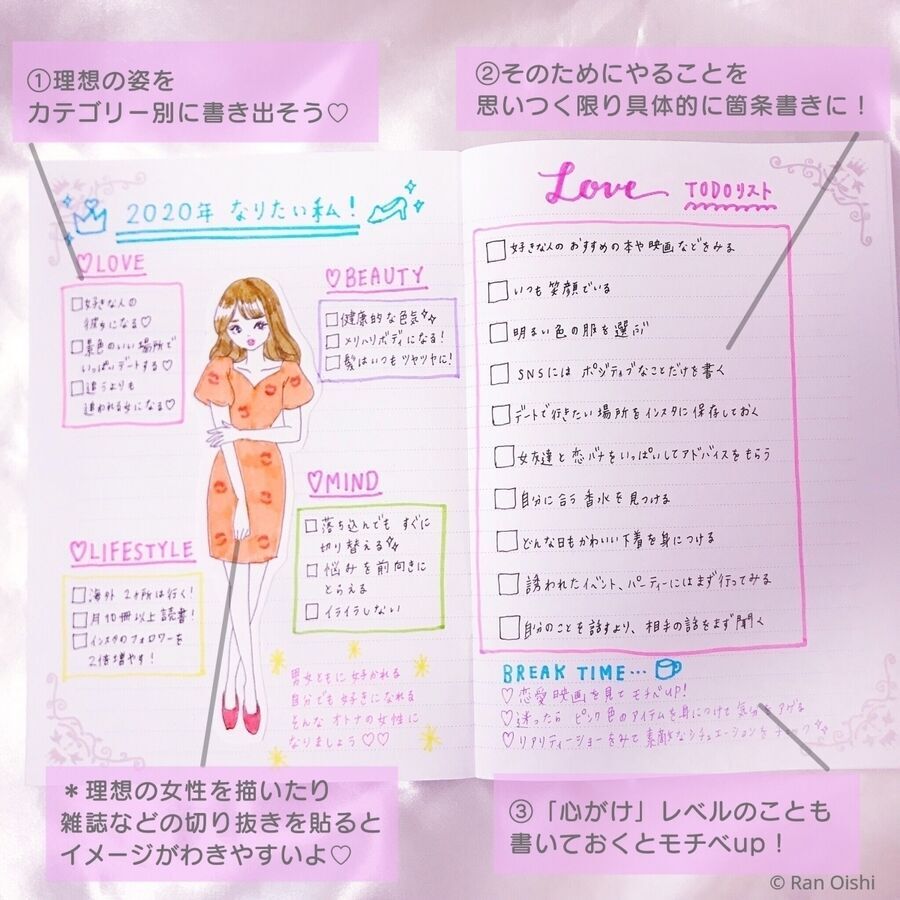 ①理想の姿を
カテゴリー別に書き出そう♡
②そのためにやることを
思いつく限り具体的に箇条書きに！
2020年 なりたい私！
♡LOVE
□好きな人の
彼女になる♡
□景色のいい場所で
いっぱいデートする♡
□追うよりも
追われる女になる♡
♡BEAUTY
□健康的な色気
□メリハリボディになる！
□髪はいつもツヤツヤに！
♡MIND
□落ち込んでもすぐに
切り替える
□悩みを前向きに
とらえる
□イライラしない
♡LIFESTYLE
□海外2ヶ所は行く！
□月10冊以上読書！
□インスタのフォロワーを
2倍増やす！
男女ともに好かれる
自分でも好きになれる
そんなオトナの女性に
なりましょう♡♡
Love TODOリスト
□好きな人のおすすめの本や映画などをみる
□いつも笑顔でいる
□明るい色の服を選ぶ
□SNSにはポジティブなことだけを書く
□デートで行きたい場所をインスタに保存しておく
□女友達と恋バナをいっぱいしてアドバイスをもらう
□自分に合う香水を見つける
□どんな日もかわいい下着を身につける
□誘われたイベント、パーティーにはまず行ってみる
□自分のことを話すより、相手の話をまず聞く
BREAK TIME…
♡恋愛映画を見てモチベUP！
♡迷ったらピンク色のアイテムを身につけて気分をアゲる
♡リアリティーショーをみて素敵なシチュエーションをチェック
＊理想の女性を描いたり
雑誌などの切り抜きを貼ると
イメージがわきやすいよ♡
③「心がけ」レベルのことも
書いておくとモチベup！
© Ran Oishi